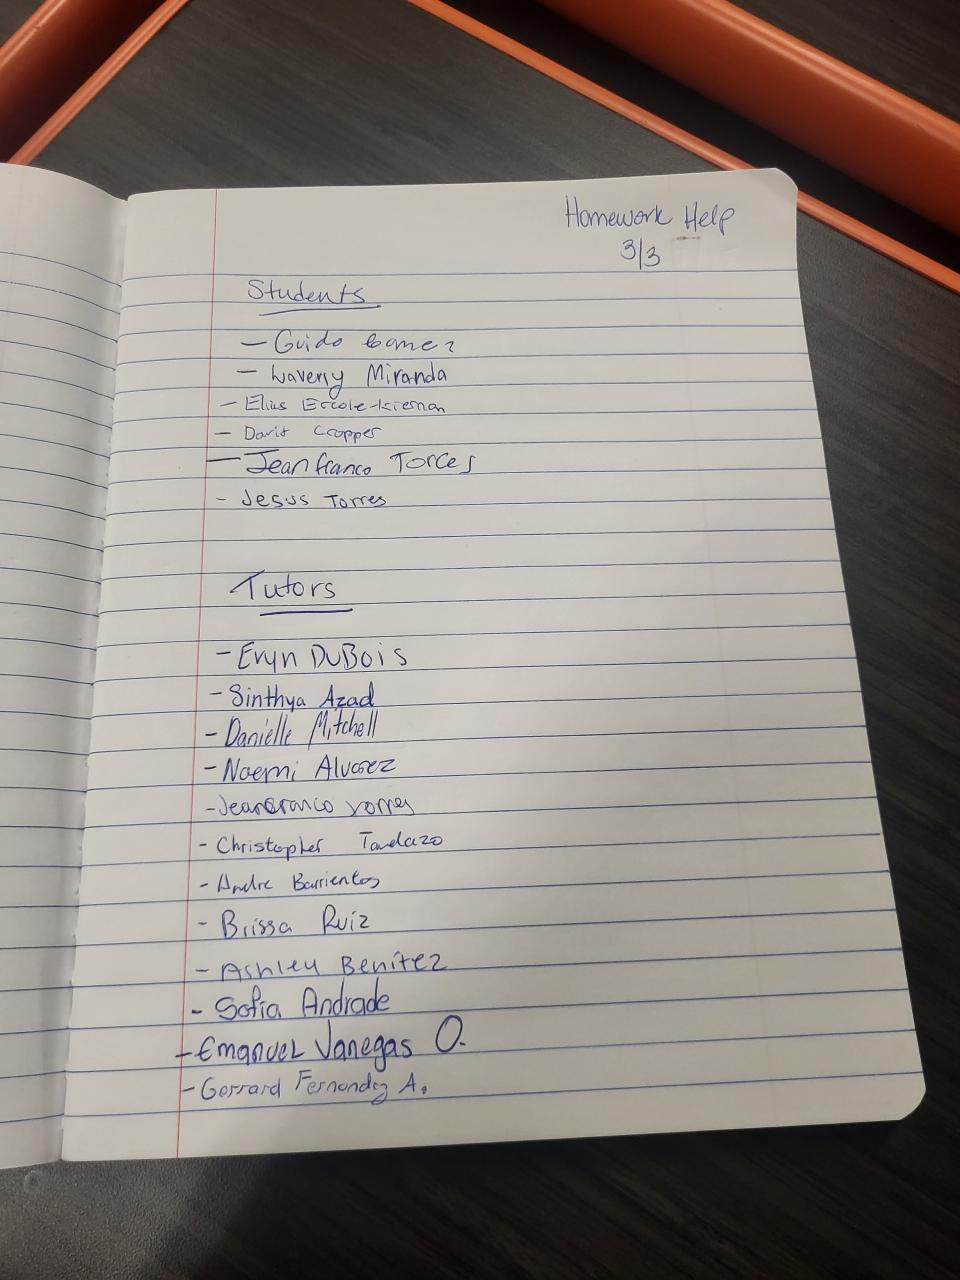 Homework Help
3/3
Students
- Guido Gomez
- Waverly Miranda
- Elius Ercole-Kiernan
- David Cropper
- Jeanfranco Torres
- Jesus Torres
Tutors
- Eryn DuBois
- Sinthya Azad
- Danielle Mitchell
- Noemi Alvarez
- Jeanfranco Torres
- Christopher Tandazo
- Andre Barrientos
- Brissa Ruiz
- Ashley Benitez
- Sofia Andrade
- Emanuel Vanegas O.
- Gerrard Fernandez A.